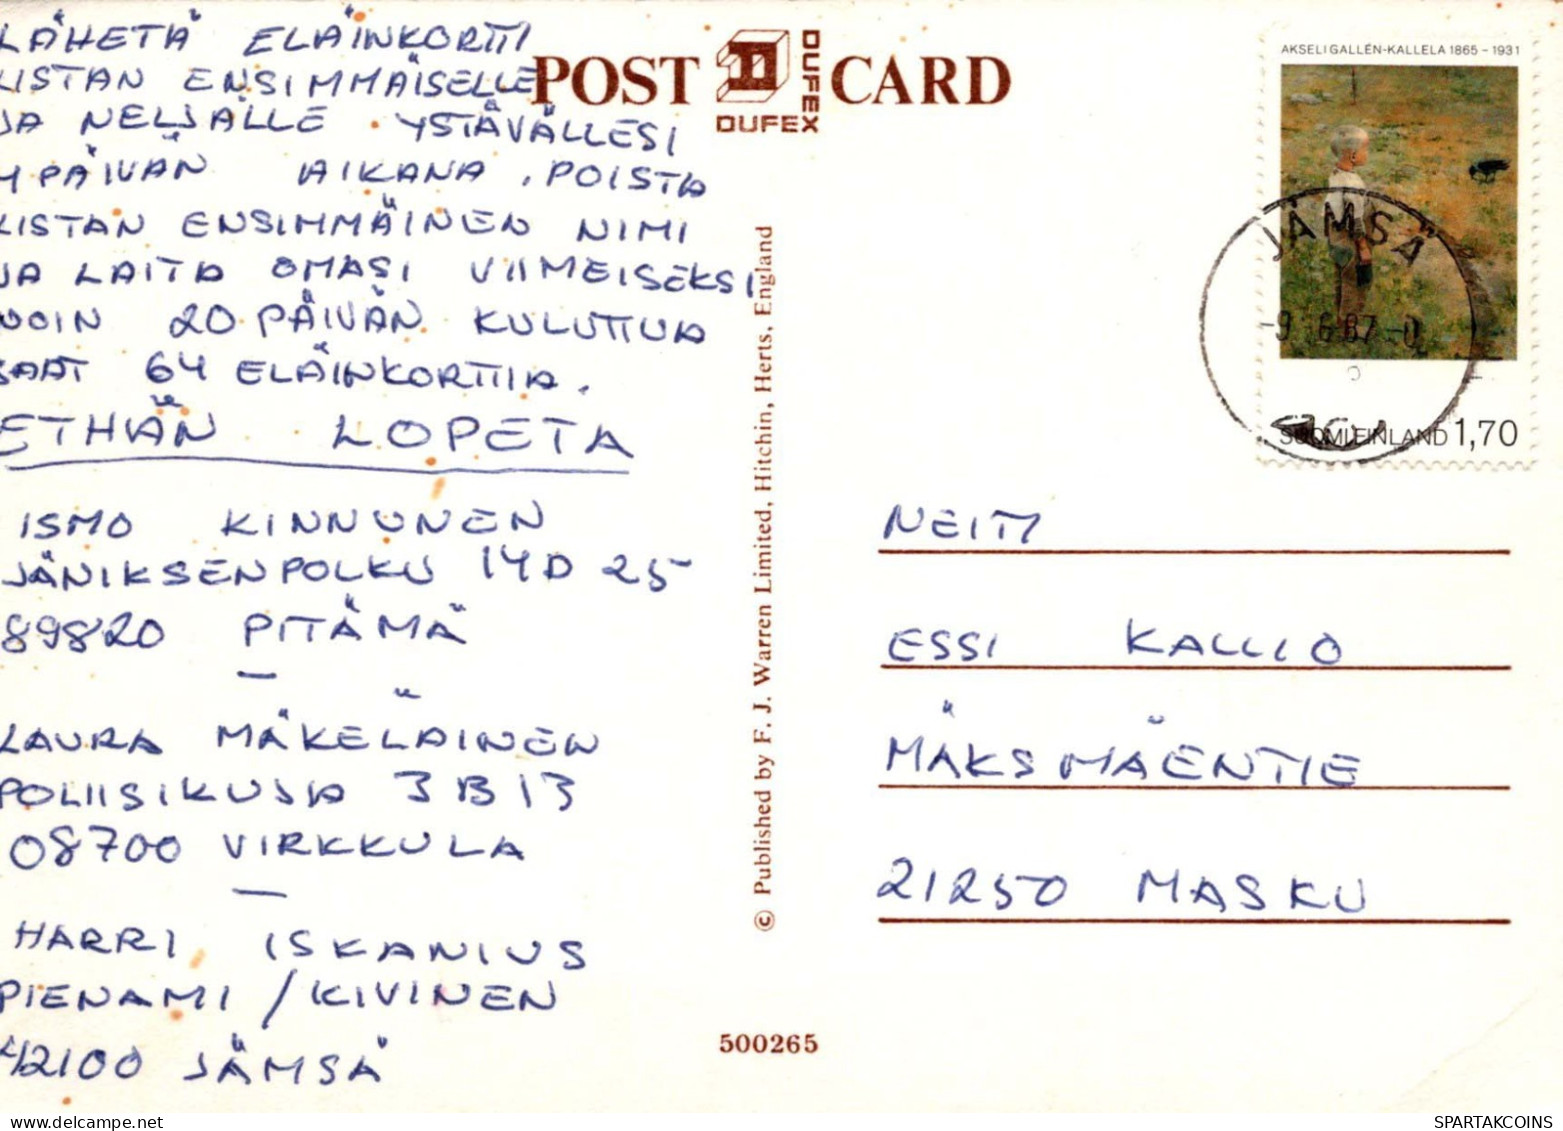 LÄHETÄ ELÄINKORTTI
LISTAN ENSIMMÄISELLE
JA NELJÄLLE YSTÄVÄLLESI
4 PÄIVÄN AIKANA. POISTA
LISTAN ENSIMMÄINEN NIMI
JA LAITA OMASI VIIMEISEKSI
NOIN 20 PÄIVÄN KULUTTUA
SAAT 64 ELÄINKORTTIA.
ETHÄN LOPETA
ISMO KINNUNEN
JÄNIKSENPOLKU 14 D 25
89820 PITÄMÄ
LAURA MÄKELÄINEN
POLIISIKUJA 3 B 13
08700 VIRKKULA
HARRI ISKANIUS
PIENAMI / KIVINEN
42100 JÄMSÄ
POST CARD
DUFEX
DUFEX
© Published by F. J. Warren Limited, Hitchin, Herts, England
500265
AKSELI GALLÉN-KALLELA 1865 - 1931
JÄMSÄ
-9.6.87-0
SUOMI FINLAND 1,70
NEITI
ESSI KALLIO
MÄKSMÄENTIE
21250 MASKU
SPARTAKCOINS